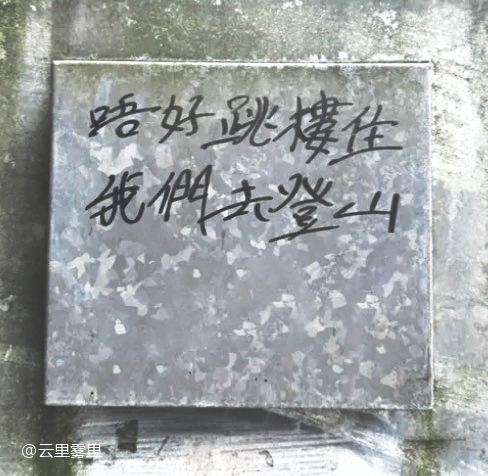 唔好跳樓住
我們去登山
@云里雾里